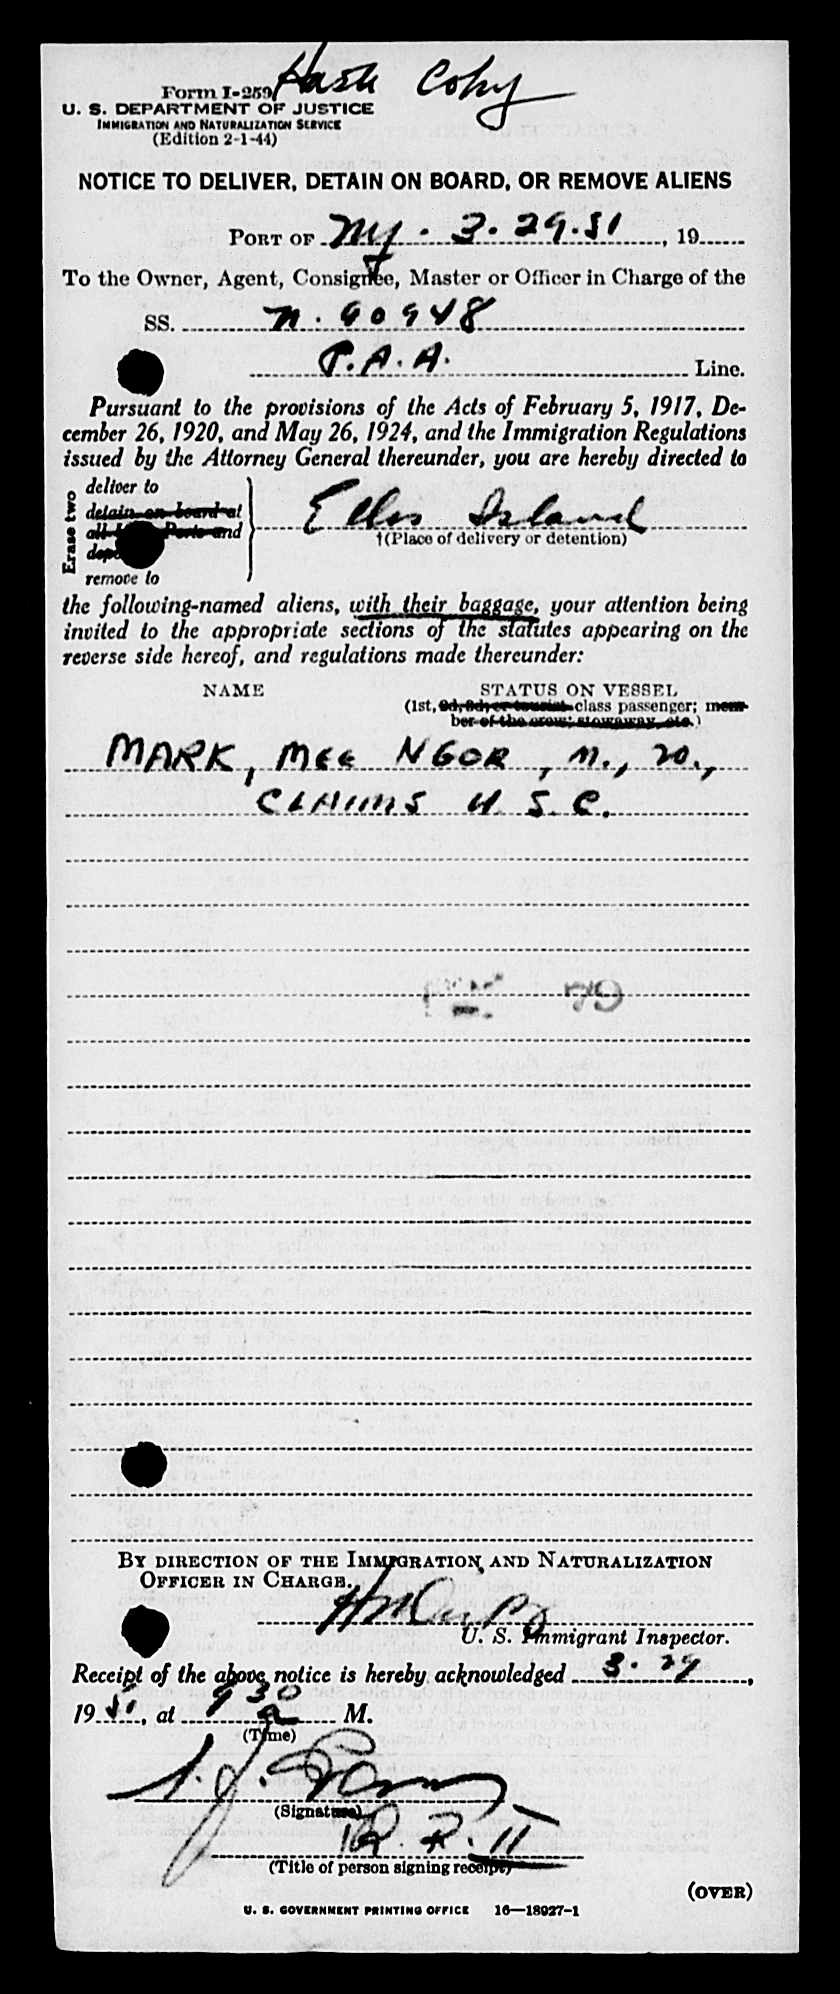 Copy
Form I-259
U. S. DEPARTMENT OF JUSTICE
IMMIGRATION AND NATURALIZATION SERVICE
(Edition 2-1-44)
NOTICE TO DELIVER, DETAIN ON BOARD, OR REMOVE ALIENS
PORT OF NY. 3.29.51, 19
To the Owner, Agent, Consignee, Master or Officer in Charge of the
SS. N. 90948
P.A.A. Line.
Pursuant to the provisions of the Acts of February 5, 1917, De-
cember 26, 1920, and May 26, 1924, and the Immigration Regulations
issued by the Attorney General thereunder, you are hereby directed to
Erase two
deliver to
detain on board at
all Ports and
remove to
Ellis Island
†(Place of delivery or detention)
the following-named aliens, with their baggage, your attention being
invited to the appropriate sections of the statutes appearing on the
reverse side hereof, and regulations made thereunder:
NAME STATUS ON VESSEL
(1st, 2d, 3d, or tourist class passenger; mem-
ber of the crew; stowaway, etc.)
MARK, MEE NGOR, M., 20.,
CLAIMS U.S.C.
BY DIRECTION OF THE IMMIGRATION AND NATURALIZATION
OFFICER IN CHARGE.
U. S. Immigrant Inspector.
Receipt of the above notice is hereby acknowledged 3.29,
19 51, at 9 30 a M.
(Time)
(Signature)
(Title of person signing receipt)
(OVER)
U. S. GOVERNMENT PRINTING OFFICE 16—18927-1